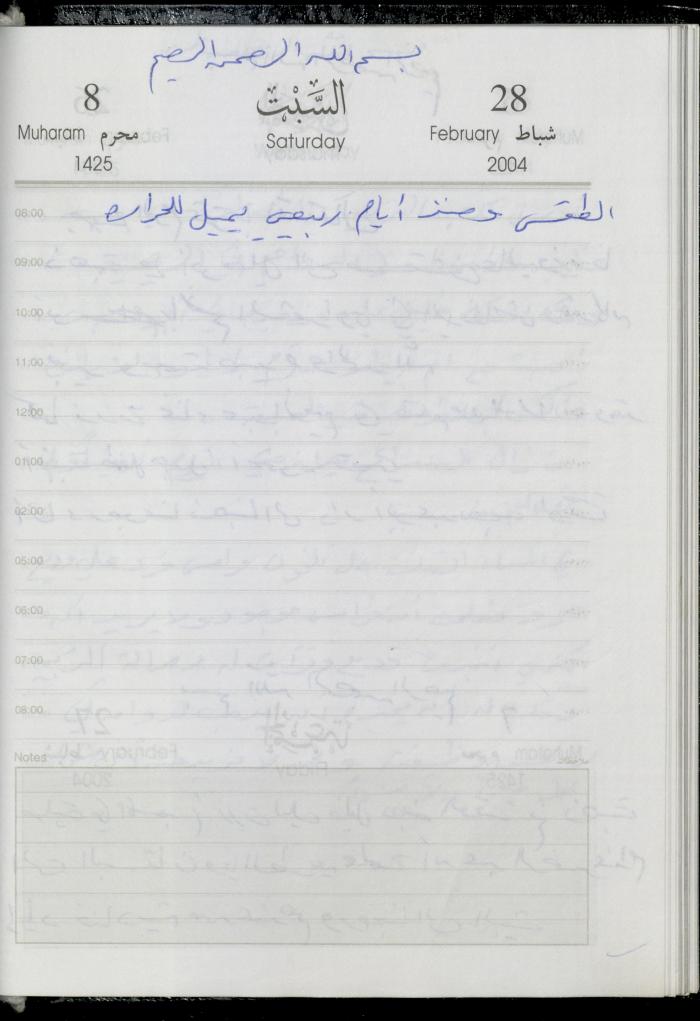 بسم الله الرحمن الرحيم
8 السَّبْت 28
Muharam محرم Saturday February شباط
1425 2004
08:00 الطقس ومنذ أيام ربيعي يميل للحرارة
09:00
10:00
11:00
12:00
01:00
02:00
05:00
06:00
07:00
08:00
Notes